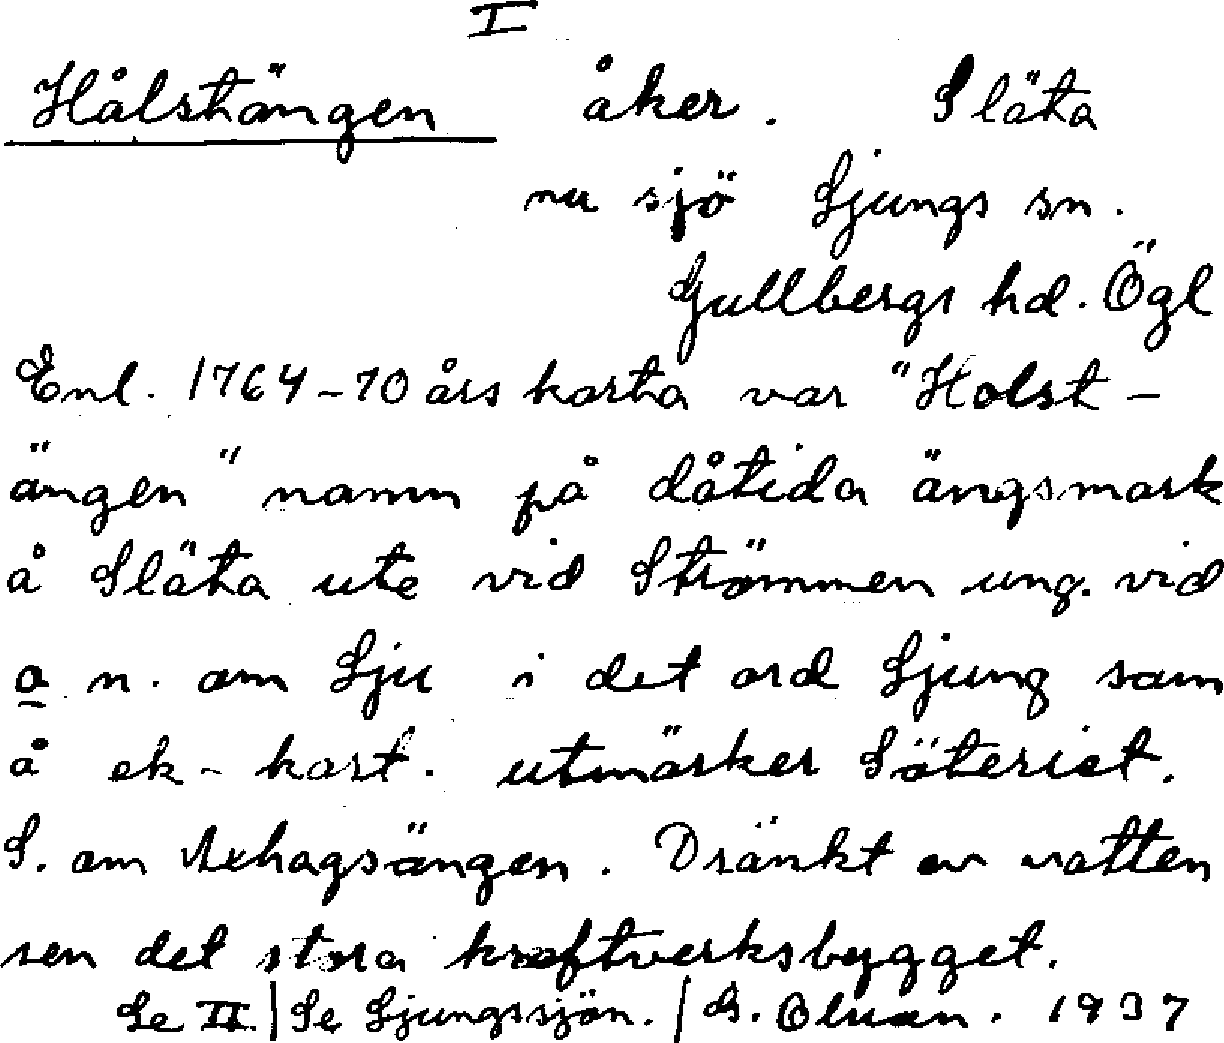 I
Hålstängen åker. Släta
nu sjö Ljungs sn.
Gullbergs hd. Ögl
Enl. 1764-70 års karta var "Holst-
ängen" namn på dåtida ängsmark
å Släta ute vid Strömmen ung. vid
a n. om Lju i det ord Ljung som
å ek-kart. utmärker Säteriet.
S. om Axhagsängen. Dränkt av vatten
sen det stora kraftverksbygget.
Se II | Se Ljungssjön. / G. Olsson. 1937